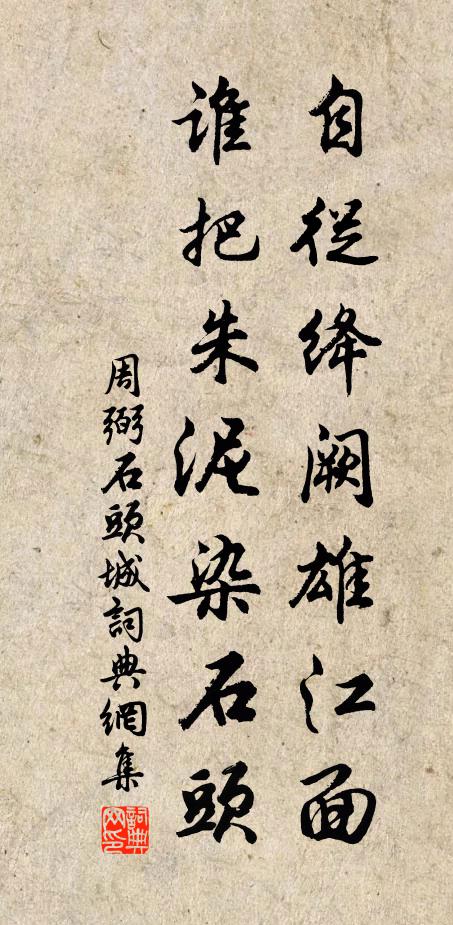 自從絳闕雄江面
誰把朱泥染石頭
周弼石頭城詞典網集
詞典网印